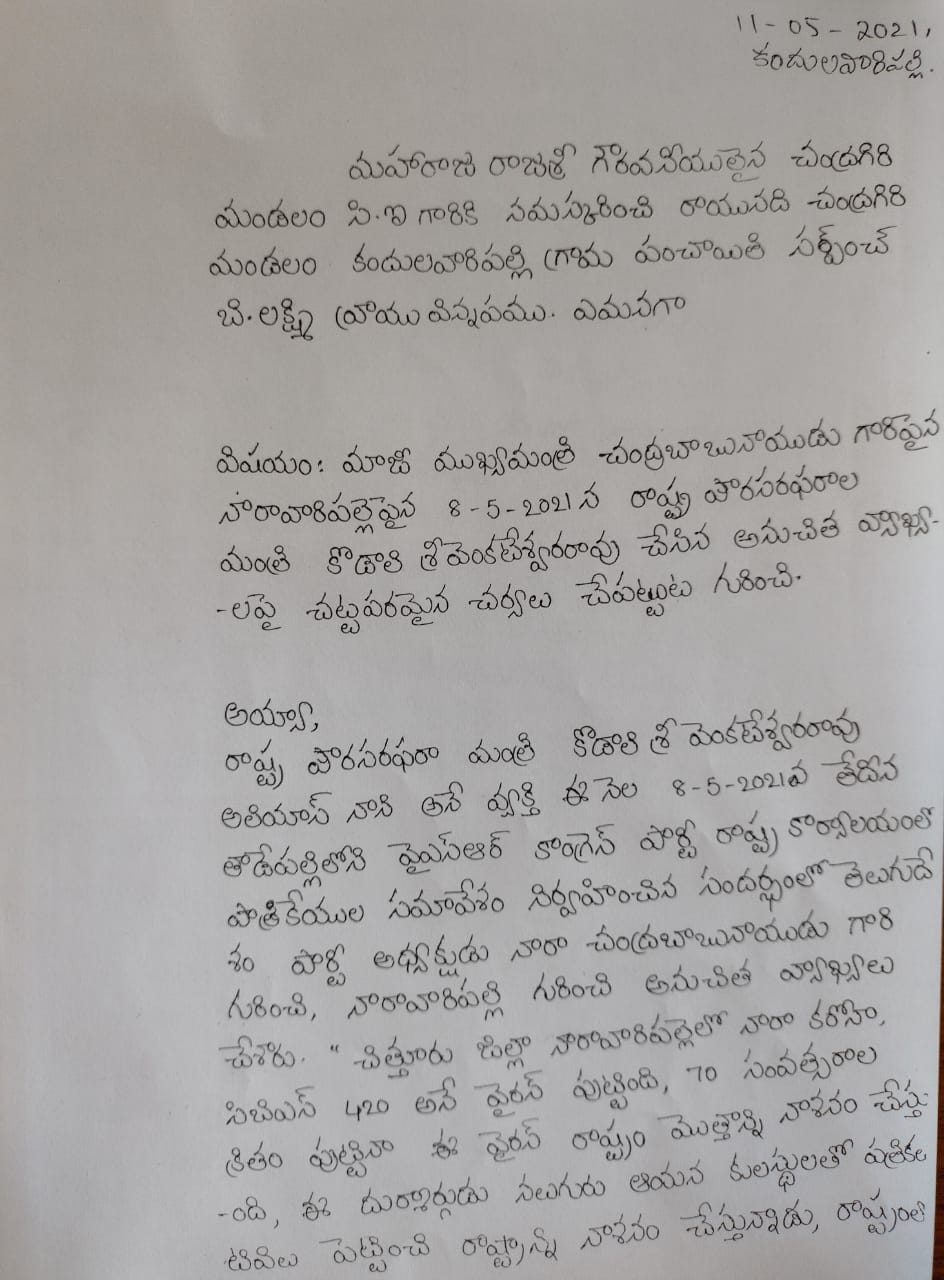 11-05-2021,
కందులవారిపల్లి.
మహారాజ రాజశ్రీ గౌరవనీయులైన చంద్రగిరి
మండలం సి.ఐ గారికి నమస్కరించి రాయునది చంద్రగిరి
మండలం కందులవారిపల్లి గ్రామ పంచాయితి సర్పంచ్
బి.లక్ష్మి వ్రాయు విన్నపము. ఏమనగా
విషయం: మాజీ ముఖ్యమంత్రి చంద్రబాబునాయుడు గారిపైన
నారావారిపల్లెపైన 8-5-2021న రాష్ట్ర పౌరసరఫరాల
మంత్రి కొడాలి శ్రీవెంకటేశ్వరరావు చేసిన అనుచిత వ్యాఖ్య-
-లపై చట్టపరమైన చర్యలు చేపట్టుట గురించి.
అయ్యా,
రాష్ట్ర పౌరసరఫరా మంత్రి కొడాలి శ్రీ వెంకటేశ్వరరావు
అలియాస్ నాని అనే వ్యక్తి ఈ నెల 8-5-2021వ తేదీన
తాడేపల్లిలోని వైఎస్ఆర్ కాంగ్రెస్ పార్టీ రాష్ట్ర కార్యాలయంలో
పాత్రికేయుల సమావేశం నిర్వహించిన సందర్భంలో తెలుగుదే
శం పార్టీ అధ్యక్షుడు నారా చంద్రబాబునాయుడు గారి
గురించి, నారావారిపల్లి గురించి అనుచిత వ్యాఖ్యలు
చేశారు. " చిత్తూరు జిల్లా నారావారిపల్లెలో నారా కరోనా,
సిబిఎన్ 420 అనే వైరస్ పుట్టింది, 70 సంవత్సరాల
క్రితం పుట్టినా ఈ వైరస్ రాష్ట్రం మొత్తాన్ని నాశనం చేస్తు
-ంది, ఈ దుర్మార్గుడు నలుగురు ఆయన కులస్థులతో పత్రికల
టివిలు పెట్టించి రాష్ట్రాన్ని నాశనం చేస్తున్నాడు, రాష్ట్రంలో